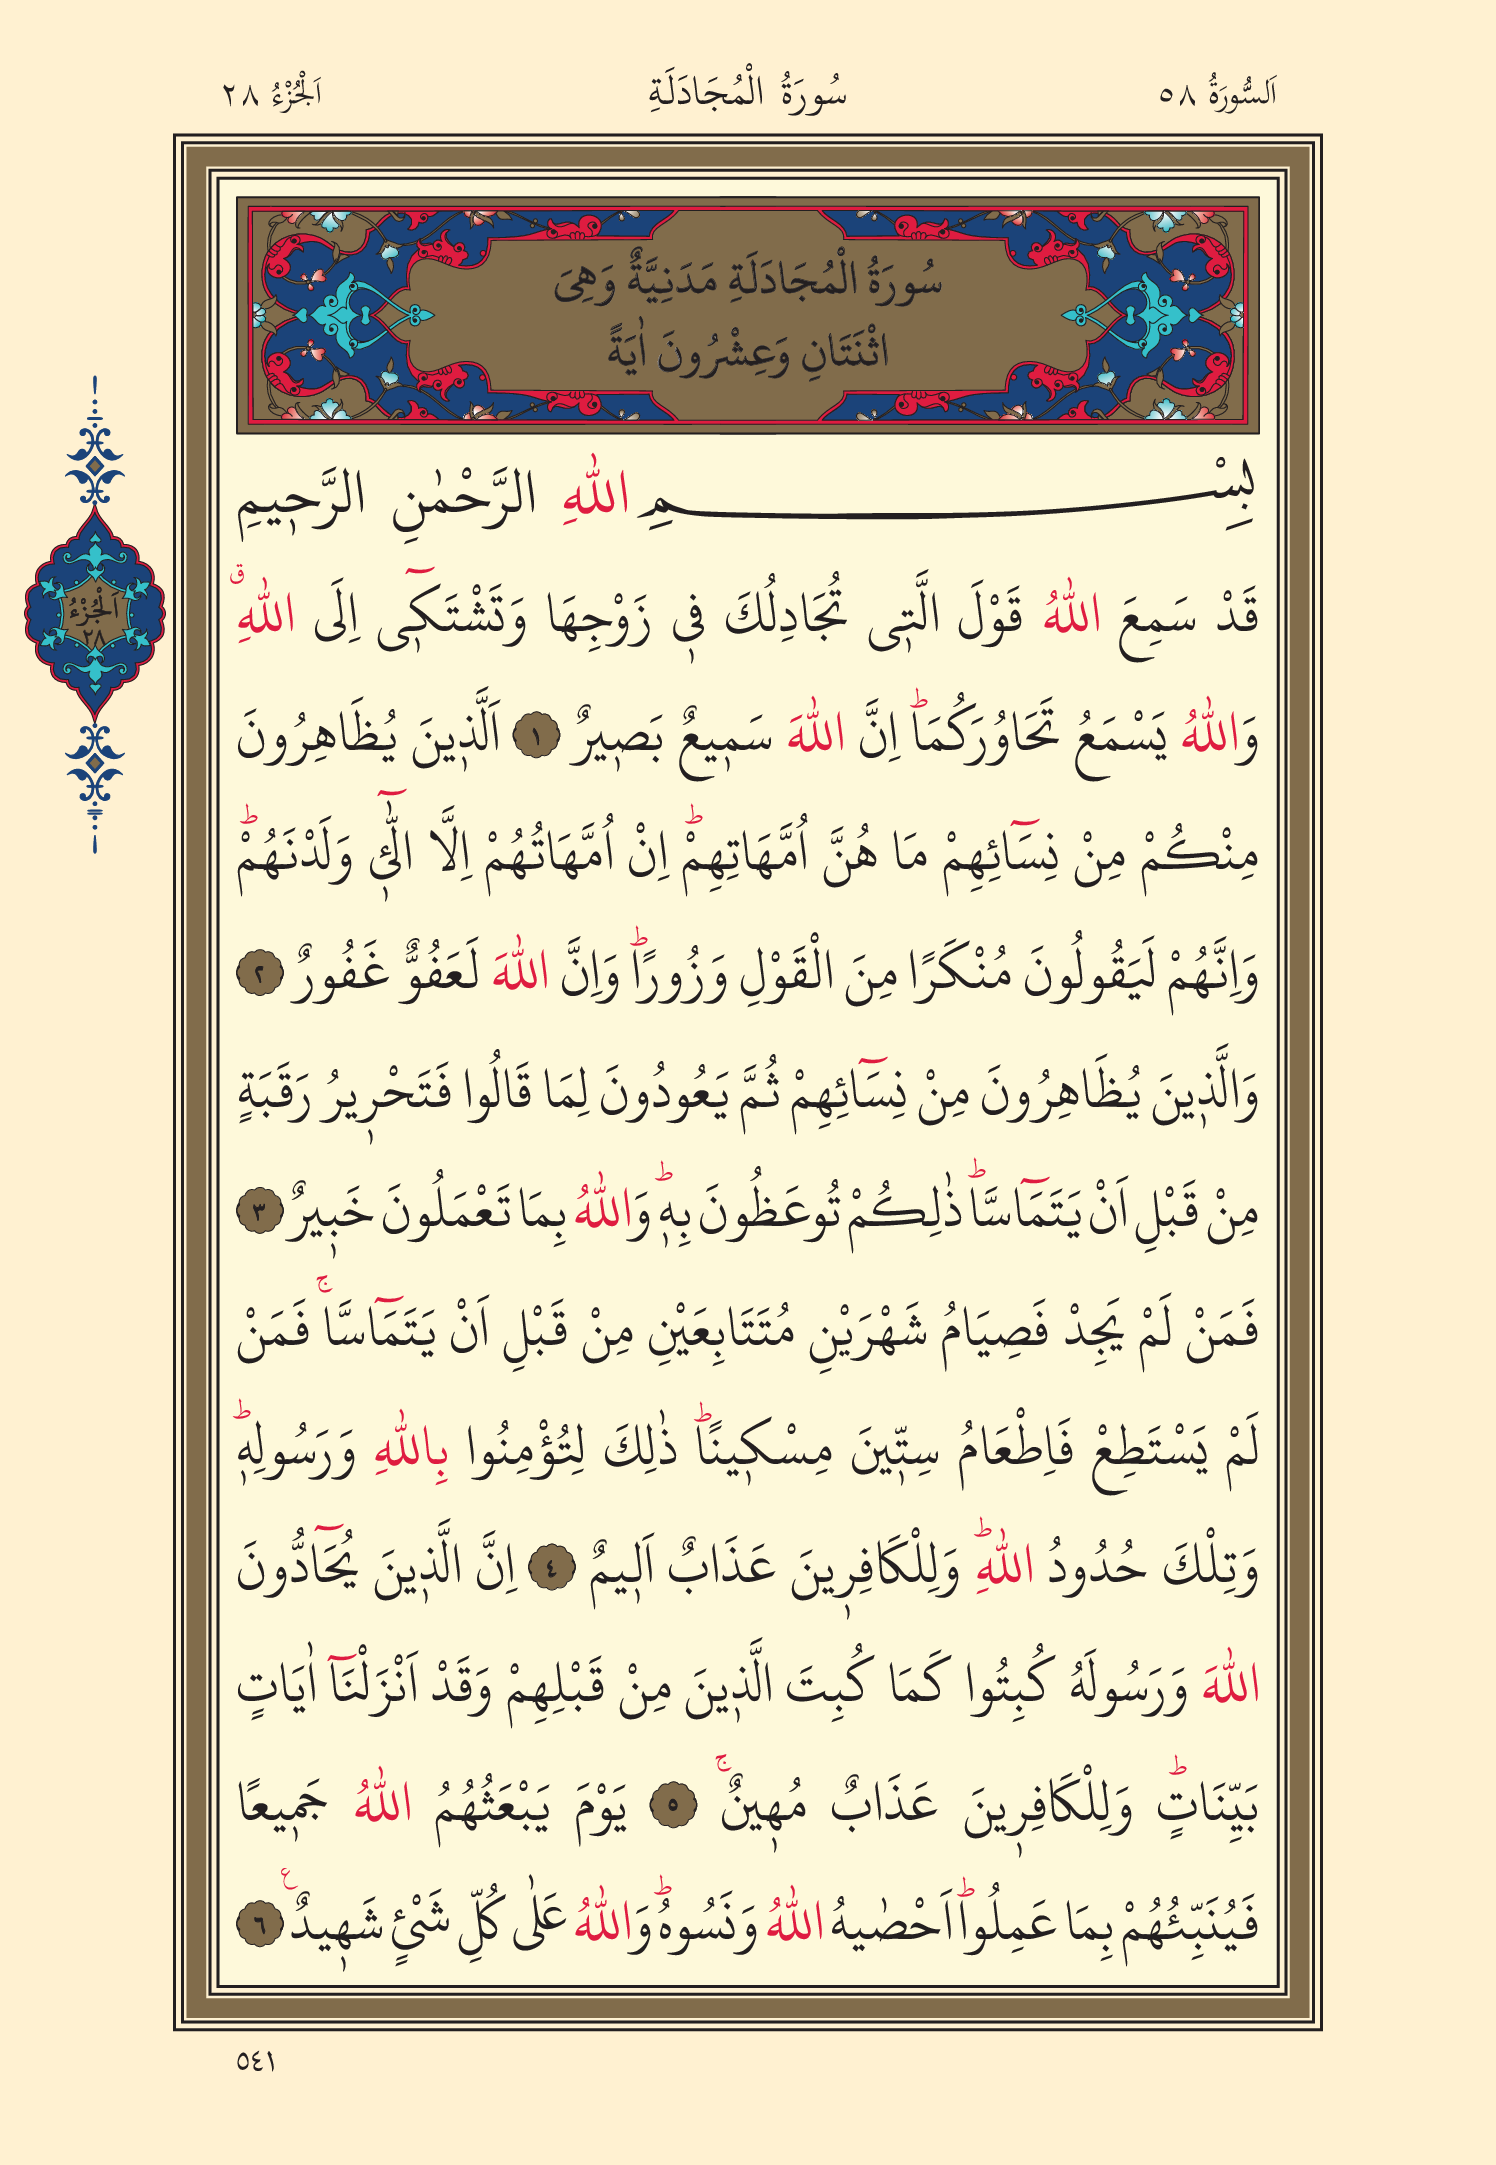 اَلسُّورَةُ ٥٨
سُورَةُ الْمُجَادَلَةِ
اَلْجُزْءُ ٢٨
سُورَةُ الْمُجَادَلَةِ مَدَنِيَّةٌ وَهِىَ
اثْنَتَانِ وَعِشْرُونَ اٰيَةً
بِسْمِ اللّٰهِ الرَّحْمٰنِ الرَّح۪يمِ
قَدْ سَمِعَ اللّٰهُ قَوْلَ الَّت۪ى تُجَادِلُكَ ف۪ى زَوْجِهَا وَتَشْتَك۪ٓى اِلَى اللّٰهِۗ
وَاللّٰهُ يَسْمَعُ تَحَاوُرَكُمَاۜ اِنَّ اللّٰهَ سَم۪يعٌ بَص۪يرٌ ١ اَلَّذ۪ينَ يُظَاهِرُونَ
مِنْكُمْ مِنْ نِسَٓائِهِمْ مَا هُنَّ اُمَّهَاتِهِمْۜ اِنْ اُمَّهَاتُهُمْ اِلَّا الّٰٓئ۪ وَلَدْنَهُمْۜ
وَاِنَّهُمْ لَيَقُولُونَ مُنْكَرًا مِنَ الْقَوْلِ وَزُورًاۜ وَاِنَّ اللّٰهَ لَعَفُوٌّ غَفُورٌ ٢
وَالَّذ۪ينَ يُظَاهِرُونَ مِنْ نِسَٓائِهِمْ ثُمَّ يَعُودُونَ لِمَا قَالُوا فَتَحْر۪يرُ رَقَبَةٍ
مِنْ قَبْلِ اَنْ يَتَمَٓاسَّاۜ ذٰلِكُمْ تُوعَظُونَ بِه۪ۜ وَاللّٰهُ بِمَا تَعْمَلُونَ خَب۪يرٌ ٣
فَمَنْ لَمْ يَجِدْ فَصِيَامُ شَهْرَيْنِ مُتَتَابِعَيْنِ مِنْ قَبْلِ اَنْ يَتَمَٓاسَّاۚ فَمَنْ
لَمْ يَسْتَطِعْ فَاِطْعَامُ سِتّ۪ينَ مِسْك۪ينًاۜ ذٰلِكَ لِتُؤْمِنُوا بِاللّٰهِ وَرَسُولِه۪ۜ
وَتِلْكَ حُدُودُ اللّٰهِۜ وَلِلْكَافِر۪ينَ عَذَابٌ اَل۪يمٌ ٤ اِنَّ الَّذ۪ينَ يُحَٓادُّونَ
اللّٰهَ وَرَسُولَهُ كُبِتُوا كَمَا كُبِتَ الَّذ۪ينَ مِنْ قَبْلِهِمْ وَقَدْ اَنْزَلْنَٓا اٰيَاتٍ
بَيِّنَاتٍۜ وَلِلْكَافِر۪ينَ عَذَابٌ مُه۪ينٌۚ ٥ يَوْمَ يَبْعَثُهُمُ اللّٰهُ جَم۪يعًا
فَيُنَبِّئُهُمْ بِمَا عَمِلُواۜ اَحْصٰيهُ اللّٰهُ وَنَسُوهُۜ وَاللّٰهُ عَلٰى كُلِّ شَىْءٍ شَه۪يدٌ ع ٦
اَلْجُزْءُ
٢٨
٥٤١